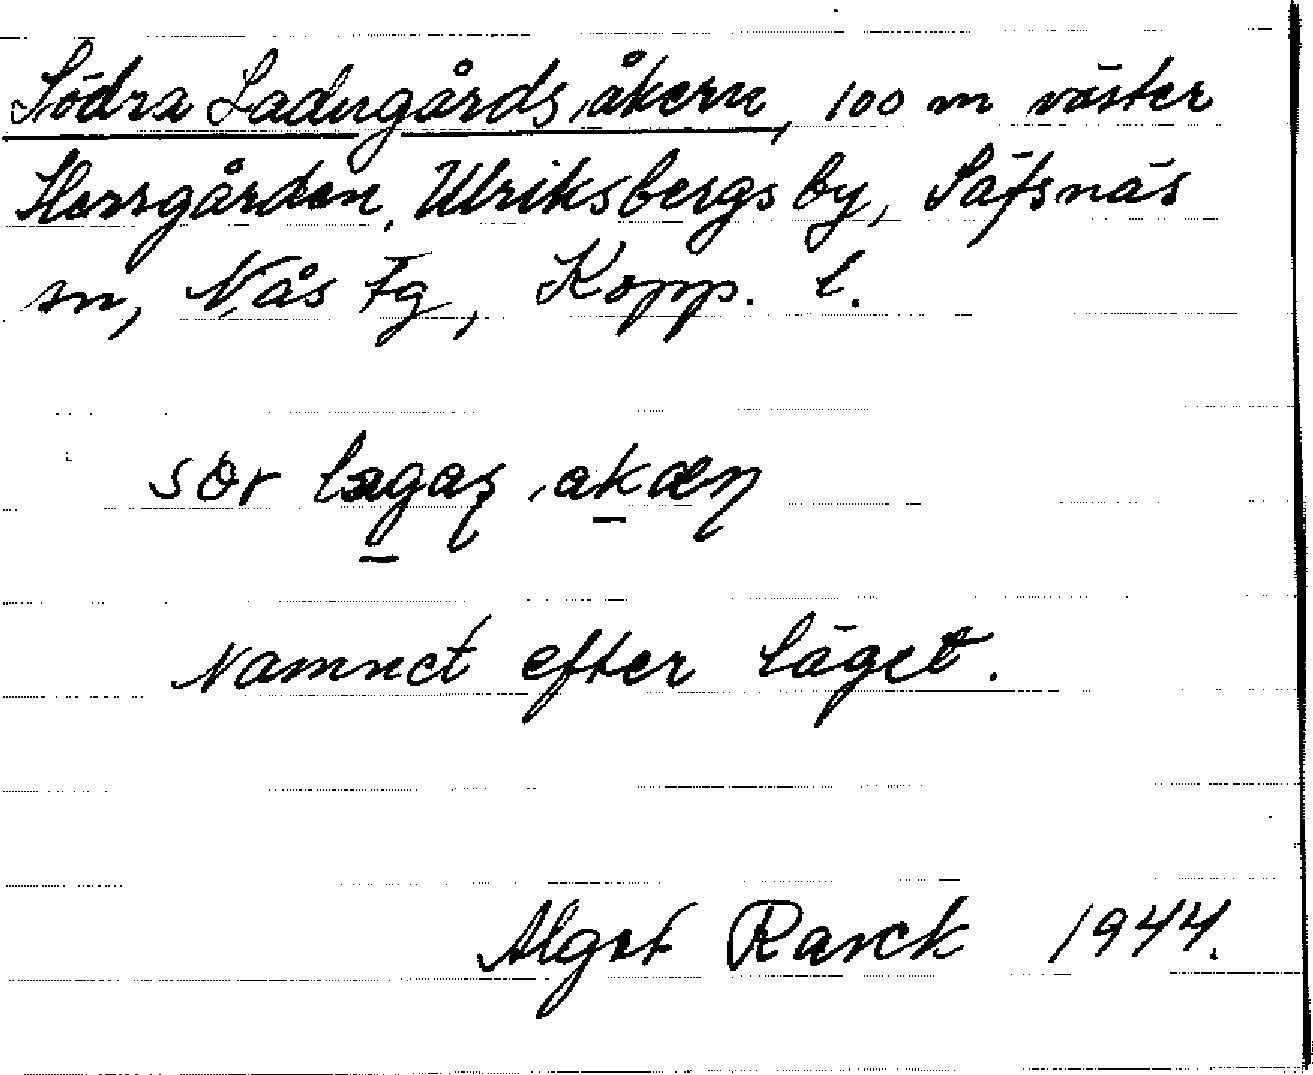 Södra Ladugårdsåkern, 100 m väster
Herrgården, Ulriksbergs by, Säfsnäs
sn, Nås Fg, Kopp. l.
sör lagaş akæŋ
Namnet efter läget.
Algot Rarck 1944.